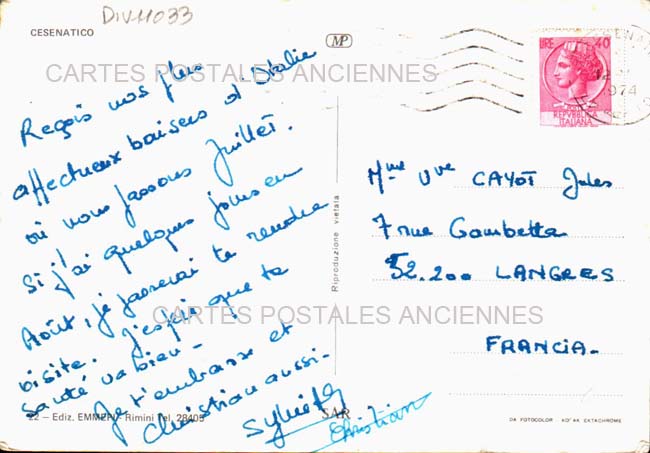 DIV-11033
CESENATICO
MP
CARTES POSTALES ANCIENNES
LIRE 40
REPVBBLICA
ITALIANA
1974
Reçois nos plus
affectueux baisers d'Italie
où nous passons Juillet.
Si j'ai quelques jours en
Août, je passerai te rendre
visite. J'espère que ta
santé va bien -
Je t'embrasse et
Christian aussi -
Sylviette
Christian
Riproduzione vietata
Mme Vve CAYOT Jules
7 rue Gambetta
52.200 LANGRES
FRANCIA.
CARTES POSTALES ANCIENNES
22 - Ediz. EMMEPI - Rimini Tel. 28405
SAR
DA FOTOCOLOR KODAK EKTACHROME